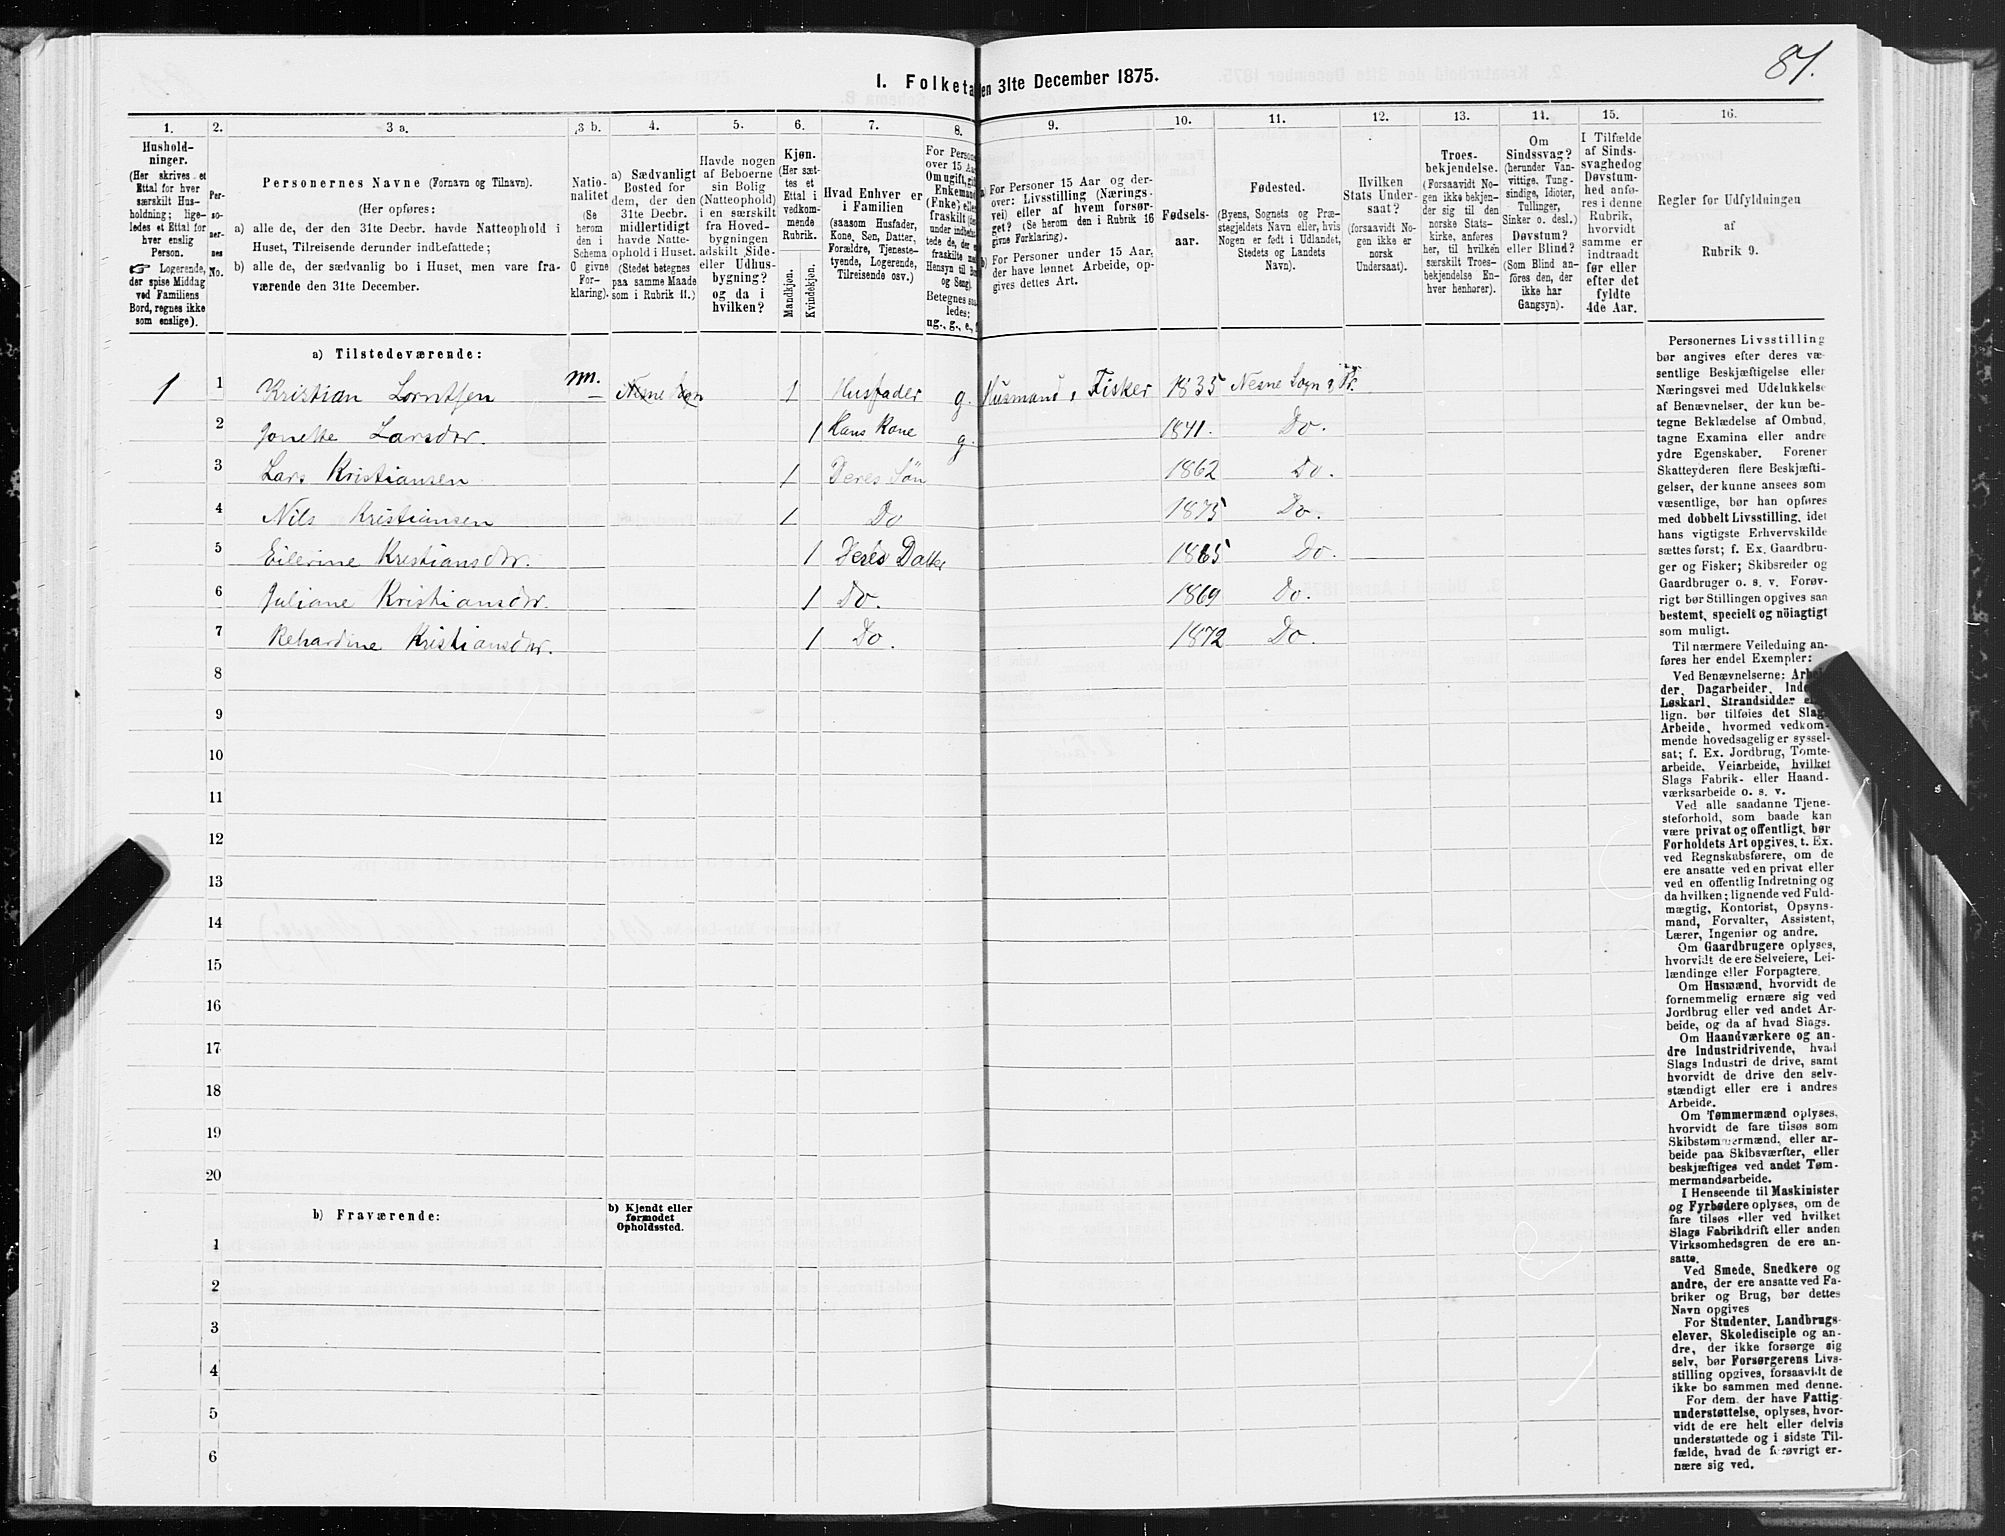 81.
I. Folketa en 31te December 1875.
1. 2. 3 a. 3 b. 4. 5. 6. 7. 8. 9. 10. 11. 12. 13. 14. 15. 16.
Hushold-
ninger.
(Her skrives et
Ettal for hver
særskilt Hus-
holdning; lige-
ledes et Ettal for
hver enslig
Person.
☞ Logerende,
der spise Middag
ved Familiens
Bord, regnes ikke
som enslige).
Per-
so-
ner-
nes
No.
Personernes Navne (Fornavn og Tilnavn).
(Her opføres:
a) alle de, der den 31te Decbr. havde Natteophold i
Huset, Tilreisende derunder indbefattede;
b) alle de, der sædvanlig bo i Huset, men vare fra-
værende den 31te December.
Natio-
nalitet
(Se
herom
den i
Schema
O givne
For-
klaring).
a) Sædvanligt
Bosted for
dem, der den
31te Decbr.
midlertidigt
havde Natte-
ophold i Huset.
(Stedet betegnes
paa samme Maade
som i Rubrik 11.)
Havde nogen
af Beboerne
sin Bolig
(Natteophold)
i en særskilt
fra Hoved-
bygningen
adskilt Side-
eller Udhus-
bygning?
og da i
hvilken?
Kjøn.
(Her sæt-
tes et
Ettal i
vedkom-
mende
Rubrik.
Mandkjøn.
Kvindekjøn.
Hvad Enhver er
i Familien
(saasom Husfader,
Kone, Søn, Datter,
Forældre, Tjeneste-
tyende, Logerende,
Tilreisende osv.)
For Person
over 15 Aar
Om ugift, gift
Enkemand
(Enke) eller
fraskilt
Hensyn til
og Seng).
Betegnes saa
ledes:
ug., g., e.,
a) For Personer 15 Aar og der-
over: Livsstilling (Nærings-
vei) eller af hvem forsør-
get? (Se herom den i Rubrik 16
givne Forklaring).
b) For Personer under 15 Aar,
der have lønnet Arbeide, op-
gives dettes Art.
Fødsels-
aar.
Fødested.
(Byens, Sognets og Præ-
stegjeldets Navn eller, hvis
Nogen er født i Udlandet,
Stedets og Landets
Navn).
Hvilken
Stats Under-
saat?
(forsaavidt No-
gen ikke er
norsk
Undersaat).
Troes-
bekjendelse.
(Forsaavidt No-
gen ikke bekjen-
der sig til den
norske Stats-
kirke, anføres
her, til hvilken
særskilt Troes-
bekjendelse En-
hver henhører).
Om
Sindssvag?
(herunder Van-
vittige, Tung-
sindige, Idioter,
Tullinger,
Sinker o. desl.)
Døvstum?
eller Blind?
(Som Blind an-
føres den, der
ikke har
Gangsyn).
I Tilfælde
af Sinds-
svaghedog
Døvstum-
hed anfø-
res i denne
Rubrik,
hvorvidt
samme er
indtraadt
før eller
efter det
fyldte
4de Aar.
Regler for Udfyldningen
af
Rubrik 9.
a) Tilstedeværende:
1 1 Kristian Lorntsen nn. 1 Husfader g. Husmand, Fisker 1835 Nesne Sogn & Pr.
2 Jonette Larsdtr. 1 Hans Kone g. 1841. Do.
3 Lars Kristiansen 1 Deres Søn 1862 Do.
4 Nils Kristiansen 1 Do 1875 Do.
5 Eilerine Kristiansdtr. 1 Deres Datter 1865 Do.
6 Juliane Kristiansdtr. 1 Do. 1869 Do.
7 Rehardine Kristiansdtr. 1 Do. 1872 Do
8
9
10
11
12
13
14
15
16
17
18
19
20
b) Fraværende:
b) Kjendt eller
formodet
Opholdssted.
1
2
3
4
5
6
Personernes Livsstilling
bør angives efter deres væ-
sentlige Beskjæftigelse eller
Næringsvei med Udelukkelse
af Benævnelser, der kun be-
tegne Beklædelse af Ombud,
tagne Examina eller andre
ydre Egenskaber. Forener
Skatteyderen flere Beskjæfti-
gelser, der kunne ansees som
væsentlige, bør han opføres
med dobbelt Livsstilling, idet
hans vigtigste Erhvervskilde
sættes først; f. Ex. Gaardbru-
ger og Fisker; Skibsreder og
Gaardbruger o. s. v. Forøv-
rigt bør Stillingen opgives saa
bestemt, specielt og nøiagtigt
som muligt.
Til nærmere Veiledning an-
føres her endel Exempler:
Ved Benævnelserne: Arbei
der, Dagarbeider, Inder
Løskarl, Strandsidder el
lign. bør tilføies det Slags
Arbeide, hvormed vedkom-
mende hovedsagelig er syssel-
sat; f. Ex. Jordbrug, Tomte-
arbeide, Veiarbeide, hvilket
Slags Fabrik- eller Haand-
værksarbeide o. s. v.
Ved alle saadanne Tjene-
steforhold, som baade kan
være privat og offentligt, bør
Forholdets Art opgives, t. Ex.
ved Regnskabsførere, om de
ere ansatte ved en privat eller
ved en offentlig Indretning og
da hvilken; lignende ved Fuld-
mægtig, Kontorist, Opsyns-
mand, Forvalter, Assistent,
Lærer, Ingeniør og andre.
Om Gaardbrugere oplyses,
hvorvidt de ere Selveiere, Lei-
lændinge eller Forpagtere.
Om Husmænd, hvorvidt de
fornemmelig ernære sig ved
Jordbrug eller ved andet Ar-
beide, og da af hvad Slags.
Om Haandværkere og an-
dre Industridrivende, hvad
Slags Industri de drive, samt
hvorvidt de drive den selv-
stændigt eller ere i andres
Arbeide.
Om Tømmermænd oplyses,
hvorvidt de fare tilsøs som
Skibstømmermænd, eller ar-
beide paa Skibsværfter, eller
beskjæftiges ved andet Tøm-
mermandsarbeide.
I Henseende til Maskinister
og Fyrbødere oplyses, om de
fare tilsøs eller ved hvilket
Slags Fabrikdrift eller anden
Virksomhedsgren de ere an-
satte.
Ved Smede, Snedkere og
andre, der ere ansatte ved Fa-
briker og Brug, bør dettes
Navn opgives
For Studenter, Landbrugs-
elever, Skoledisciple og an-
dre, der ikke forsørge sig
selv, bør Forsørgerens Livs-
stilling opgives, forsaavidt de
ikke bo sammen med denne.
For dem, der have Fattig-
understøttelse, oplyses, hvor-
vidt de ere helt eller delvis
understøttede og i sidste Til-
fælde, hvad de forøvrigt er-
nære sig ved.